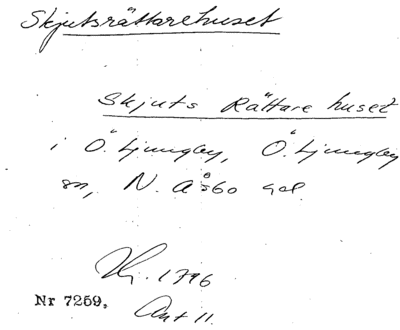 Skjutsrättarehuset
Skjuts Rättare huset
i Ö. Ljungby, Ö. Ljungby
sn, N. Åsbo hd.
Hf. 1796
Ant 11.
Nr 7259,